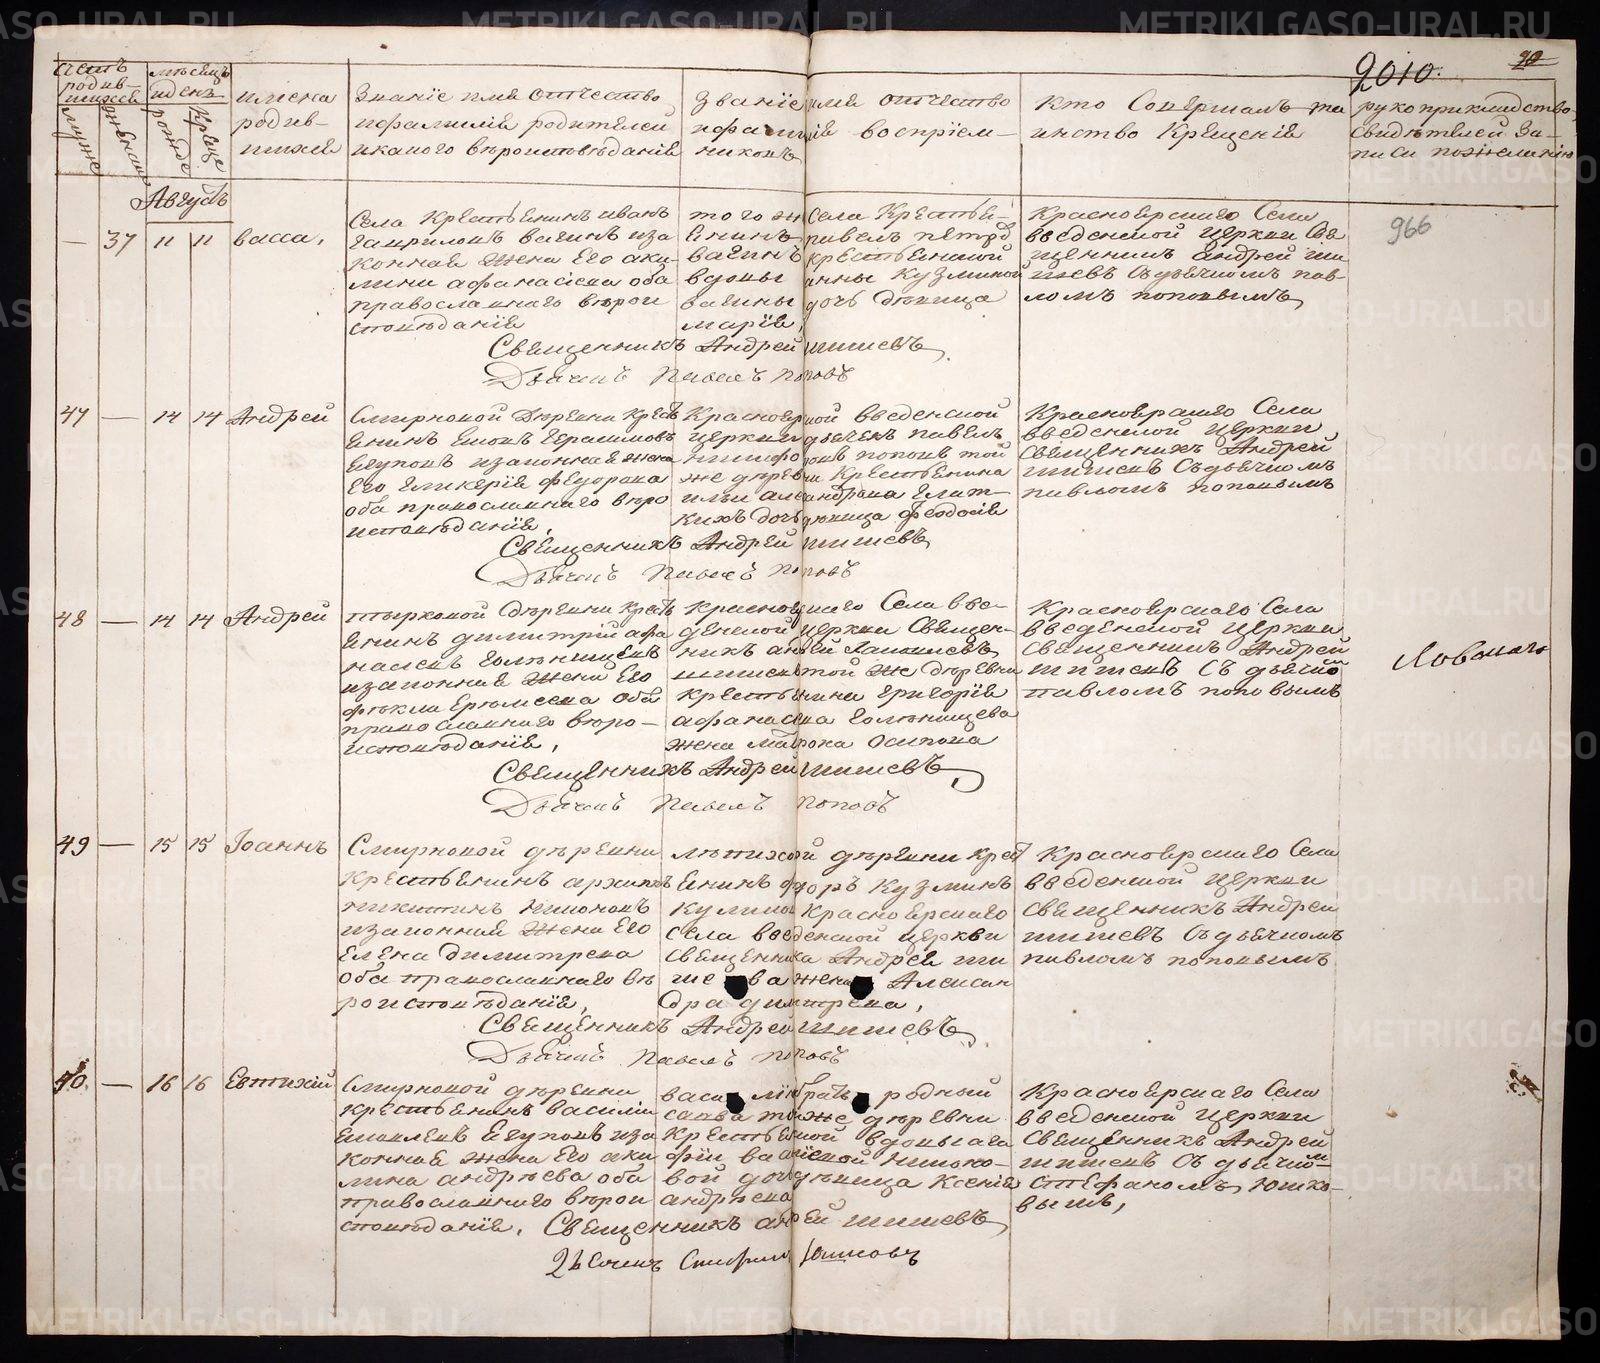 2010.
20
счетъ родив-шихся
мужес
женска
мѣсяцъ и день
рожде
крѣще
имена родив-шихся
Званіе имя отчество и фамилія родителей и какого вѣроисповѣданія
Званіе имя отчество и фамилія воспріем-никовъ
кто Совершалъ та инство Крещенія
рукоприкладство Свидѣтелей За-писи пожеланію
Августъ
— 37 11 11 васса,
Села Крестьянинъ иванъ
гавриловъ вагинъ и за
конная жена его аки-
лина афанасіева оба
православнаго вѣрои
сповѣданія
того ж Села Крестья-
янинъ павелъ петровъ
вагинъ крестьянской
вдовы анны Кузминой
вагины дочь дѣвица
марія,
Красноярскаго Села
введенской церкви Свя
щенникъ андрей ши
шевъ съ дьячкомъ пав-
ломъ поповымъ
966
Священникъ Андрей шишевъ
Дьячекъ Павелъ поповъ
47 — 14 14 Андрей
Смирновой Дѣревни Крестъ
янинъ герасимовъ
Егуповъ и законная жена
Его гликерія федорова
оба православнаго вѣро
исповѣданія,
Красноярской введенской
церкви дьячекъ павелъ
поповъ той
же дѣревни Крестьянина
ильи александрова
дочь дѣвица феодосія
Красноярскаго Села
введенской церкви
Священникъ Андрей
шишевъ Съ дьячкомъ
павломъ поповымъ
Священникъ Андрей шишевъ
Дьячекъ Павелъ поповъ
48 — 14 14 Андрей
Дѣревни Крестъ
янинъ димитрій афа
насьевъ голенищевъ
и законная жена Его
фекла Ерѣмеева оба
православнаго вѣро-
исповѣданія,
Красноярскаго Села вве-
денской церкви Священ-
никъ андрей
шишевъ той же дѣревни
крестьянина григорія
афанасьева голенищева
жена мавра осипова
Красноярскаго Села
введенской церкви
Священникъ Андрей
шишевъ съ дьячкомъ
павломъ поповымъ
Священникъ Андрей шишевъ
Дьячекъ Павелъ поповъ
49 — 15 15 Іоаннъ
Смирновой дѣревни
крестьянинъ архипъ
никитинъ
и законная жена Его
Елена Димитрева
оба православнаго вѣ
роисповѣданія,
дѣревни Крест
янинъ федоръ Кузминъ
Красноярскаго
Села введенской церкви
Священника Андрея ши
шева жена Алексан
дра димитрева,
Красноярскаго Села
введенской церкви
Священникъ Андрей
шишевъ Съ дьячкомъ
павломъ поповымъ
Священникъ Андрей шишевъ
Дьячекъ Павелъ поповъ
50. — 16 16 Евтихій
Смирновой дѣревни
крестьянинъ василій
яковлевъ Егуповъ и за
конная жена Его аки
лина андрѣева оба
православнаго вѣрои
сповѣданія.
братъ родный
савва тойже дѣревни
Крестьянской вдовы ага
фіи васильевой
дочь дѣвица Ксенія
андрѣева
Красноярскаго Села
введенской церкви
Священникъ Андрей
шишевъ Съ дьячком
Стефаномъ Юшко-
вымъ,
Священникъ андрей шишевъ
Дьячекъ Стефанъ Юшковъ
METRIKI.GASO-URAL.RU